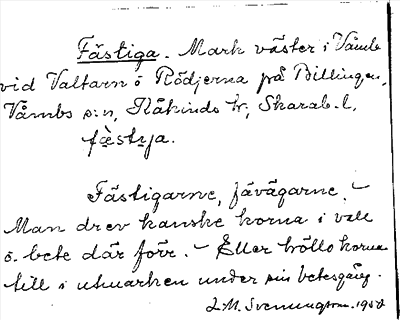 Fästiga. Mark väster i Våmb
vid Valtarn o Rödjerna på Billingen,
Våmbs s:n, Kåkinds hd, Skarab. l.
fæstɩja.
Fästigarne, fävägarne. –
Man drev kanske korna i vall
o. bete där förr. – Eller höllo korna
till i utmarken under sin betesgång.
L.M. Svennungsson. 1950